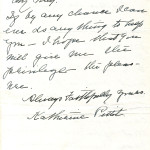 If by any chance I can
ever do any thing to help
you – I hope that you
will give me the
privilege the pleas-
ure.
Always faithfully yours,
Katherine Pettit